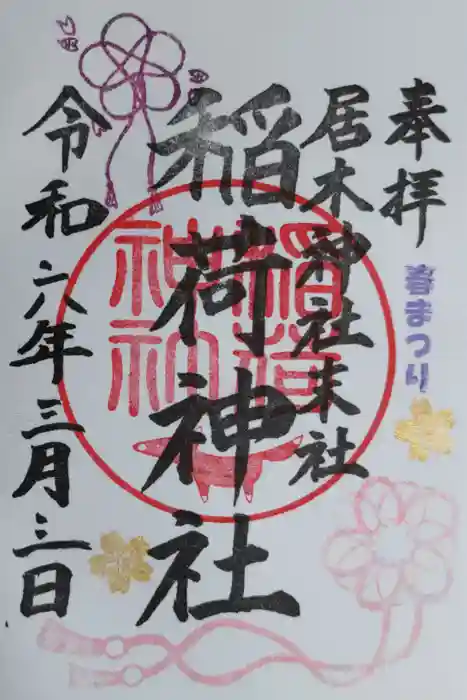 奉拝
春まつり
居木神社末社
稲荷神社
稲荷神社
令和六年三月三日